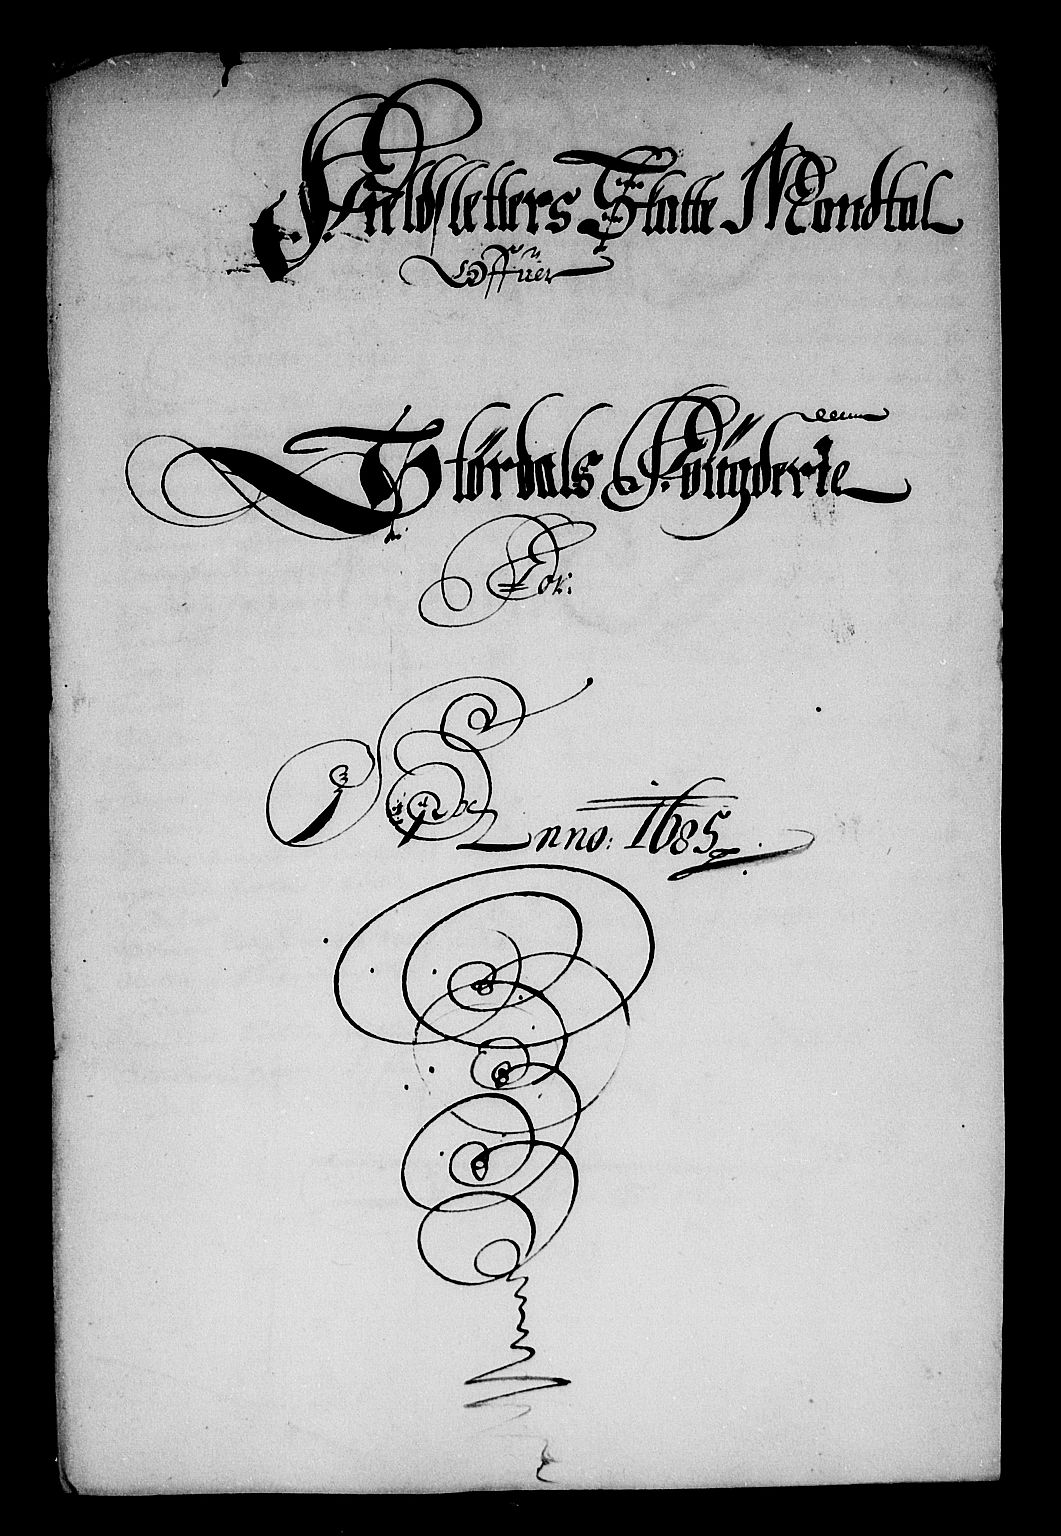 Kield Sletters Skatte Mandtal
Offuer
Stördals Fougderie
For:
Anno: 1685